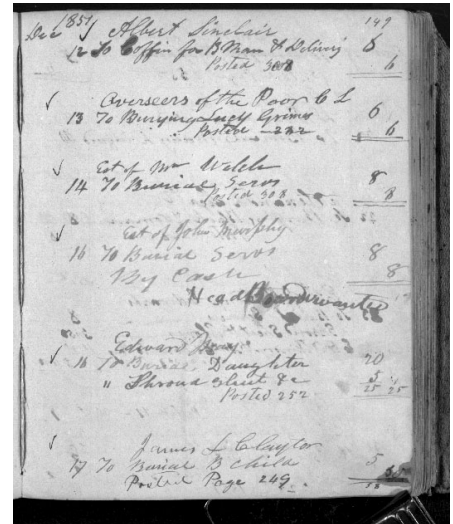 149
Dec 1851 Albert Sinclair
12 To Coffin for B Man & Delivery 6
Posted 308 6
Overseers of the Poor C L
13 To Burying Lucy Grimes 6
Posted 232 6
Est of Mr Welch
14 To Burial Servs 8
Posted 308 8
Est of John Murphy
16 To Burial Servs 8
By Cash 8
Head
Edward
16 To Burial Daughter 20
" Shroud Sheet &c 5
25 25
Posted 252
James L Claytor
17 To Burial B Child 5
Posted Page 249